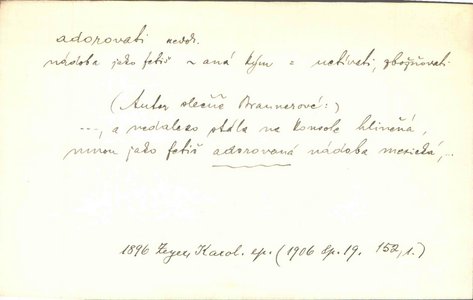 adorovati nedok.
nádoba jako fetiš ~ aná kým = uctívati, zbožňovati
(Autor slečně Braunerové:)
..., a nedaleko stála na konsole hliněná,
mnou jako fetiš adorovaná nádoba mexická,...
1896 Zeyer, Karol. ep. (1906 Sp. 19. 152,1.)